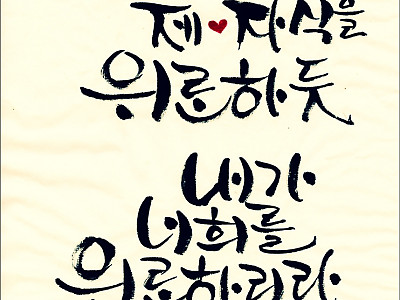 제♥자식을
위로하듯
내가
너희를
위로하리라